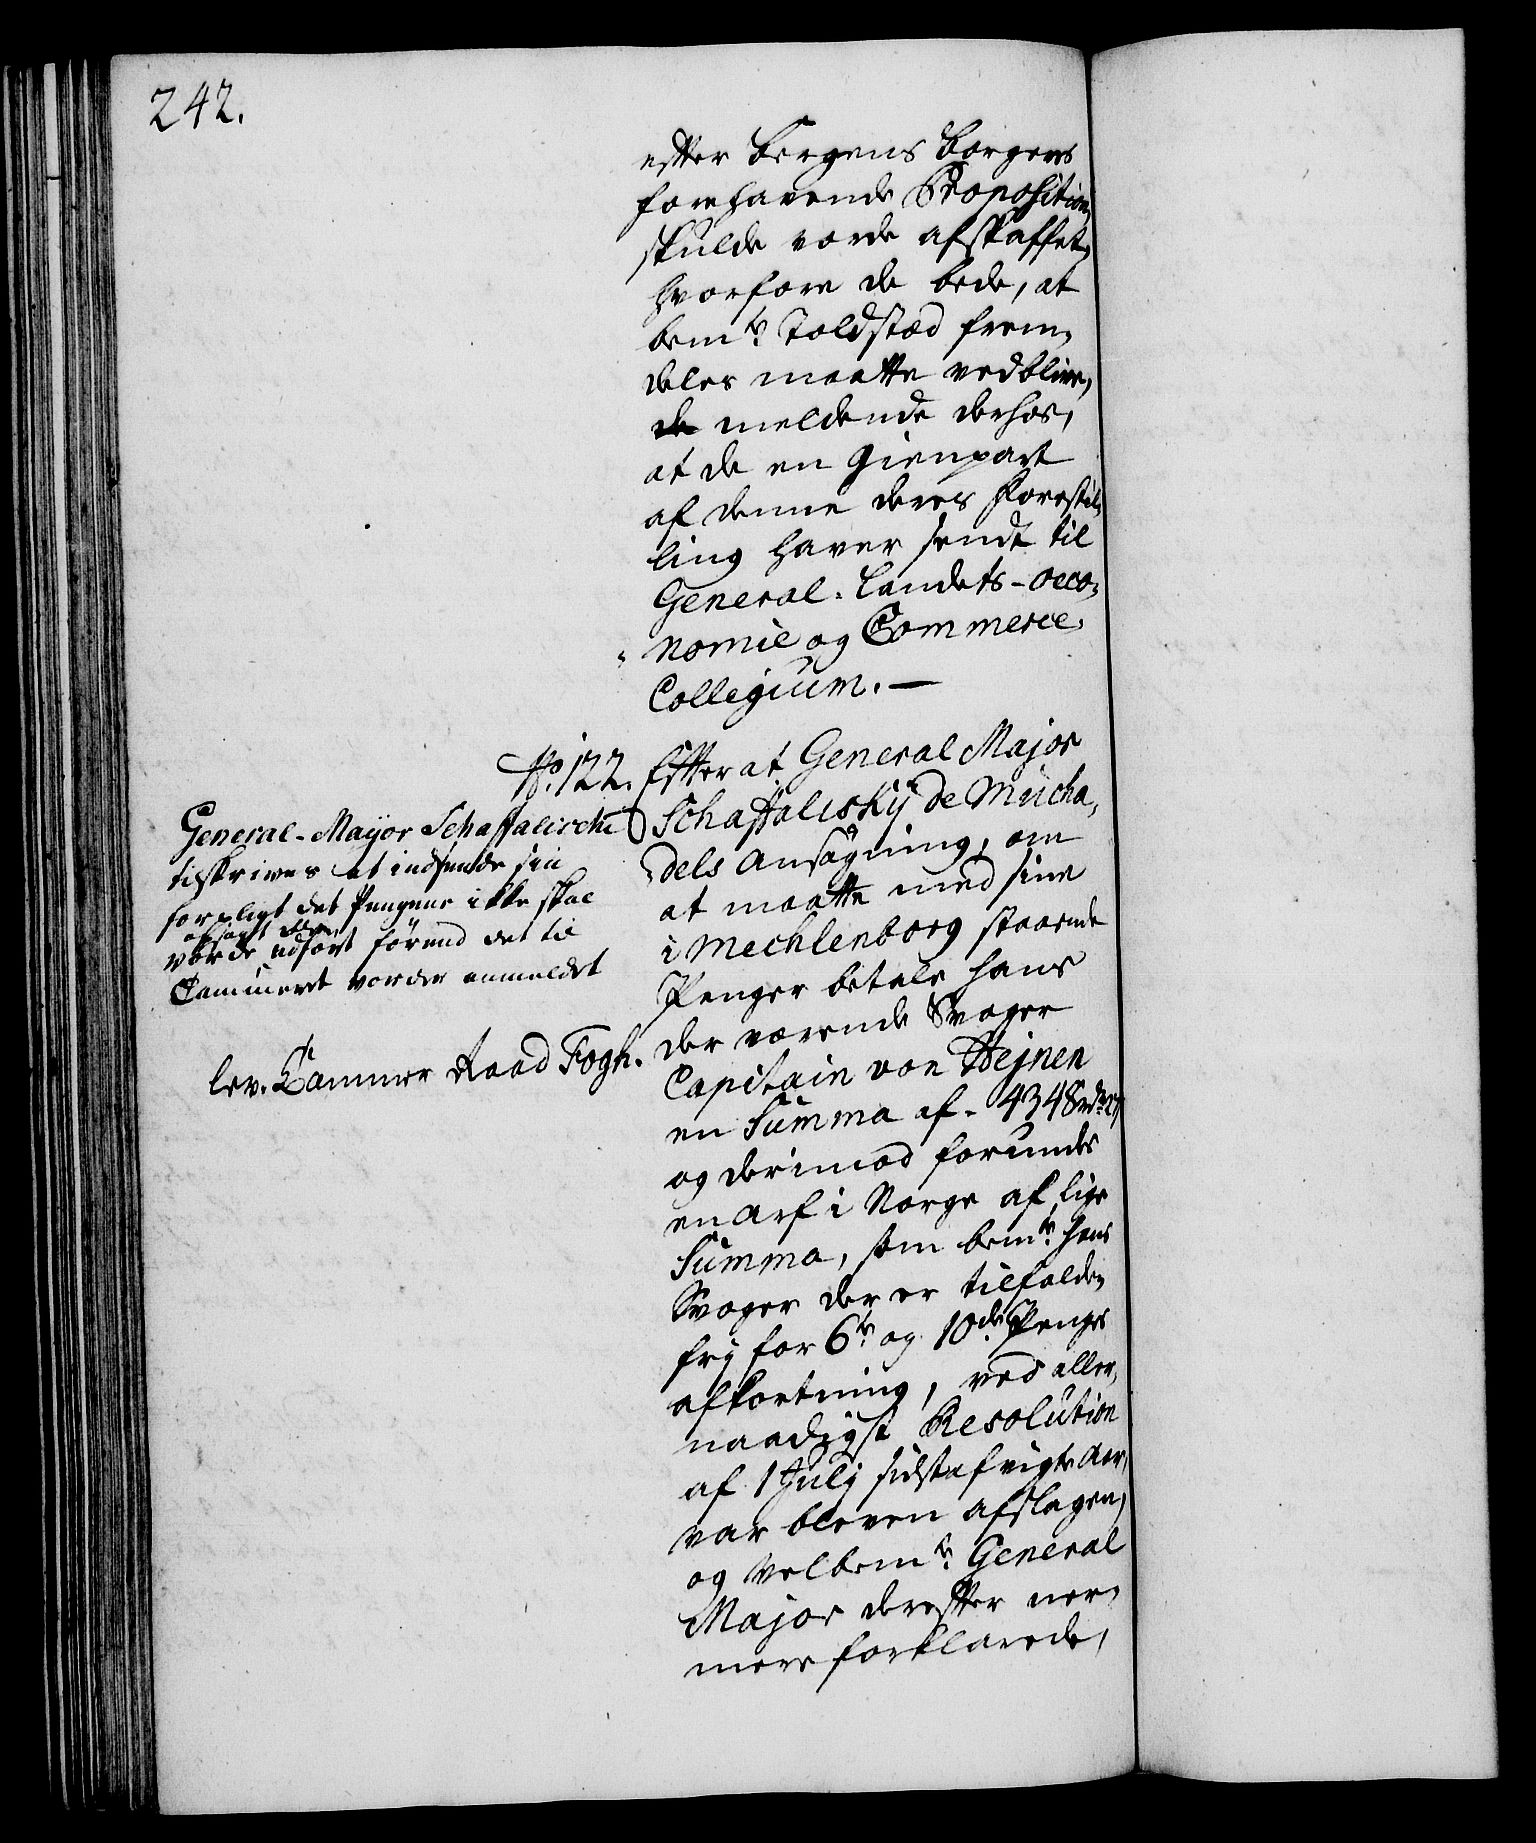 242.
efter Bergens Borgeres
forehavende Proposition,
skulde vorde afskaffet,
hvorfore de bede, at
bemte Toldstæd frem,
deles maatte vedblive,
de meldende derhos,
at de en Gienpart
af denne deres Forestil,
ling haver sendt til
General-Landets-Oeco,
nomie og Commerce,
Collegium. —
No. 122.
General-Mayor Schaffalischi
tilskrives at indsende sin
forsligt det Pengene ikke skal
vorde udført førend det til
Cammeret vorder anmeldet
lev. Cammer Raad Fogh.
Efter at General Major
Schaffalisky de Mucha,
dels Ansøgning, om
at maatte med sine
i Mechlenborg staaende
Penger betale hans
der værende Svoger
Capitain von Hejnen
en Summa af 4348 rdr
og derimod forundes
en Arf i Norge af lige
Summa, som bemte hans
Svoger der er tilfalden
frj for 6te og 10de Penges
afkortning, ved aller,
naadigst Resolution
af 1 Julj sidstafvigte Aar,
var bleven afslagen,
og Velbemte General
Major derefter ner,
mere forklarede,